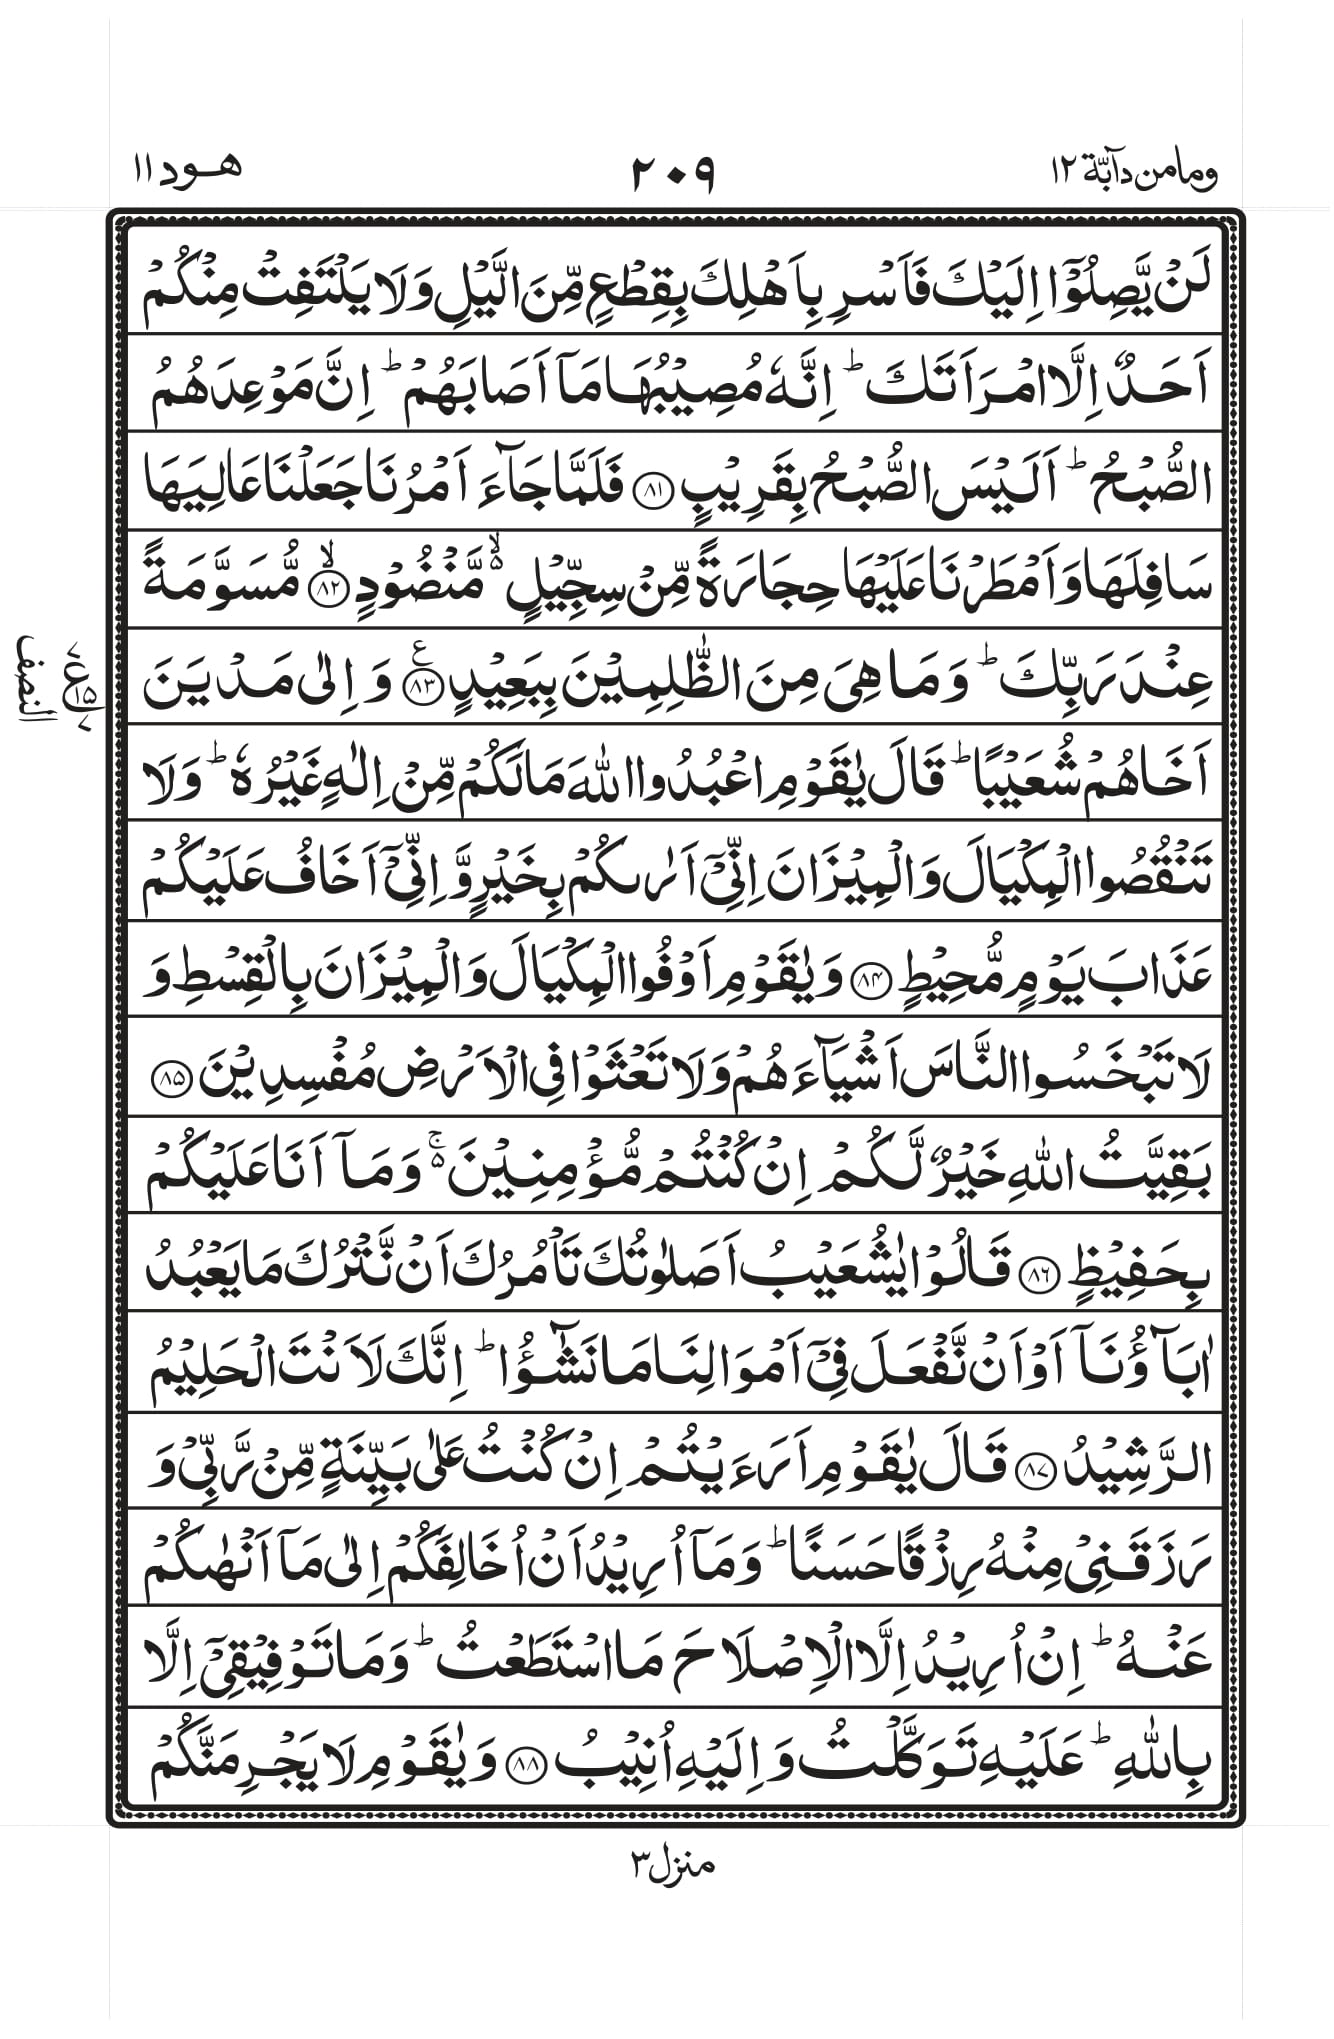 ومامن دآبّة ۱۲
۲۰۹
هود ۱۱
لَنْ يَّصِلُوْۤا اِلَيْكَ فَاَسْرِ بِاَهْلِكَ بِقِطْعٍ مِّنَ الَّيْلِ وَلَا يَلْتَفِتْ مِنْكُمْ
اَحَدٌ اِلَّا امْرَاَتَكَ ؕ اِنَّهٗ مُصِيْبُهَا مَاۤ اَصَابَهُمْ ؕ اِنَّ مَوْعِدَهُمُ
الصُّبْحُ ؕ اَلَيْسَ الصُّبْحُ بِقَرِيْبٍ ﴿۸۱﴾ فَلَمَّا جَآءَ اَمْرُنَا جَعَلْنَا عَالِيَهَا
سَافِلَهَا وَاَمْطَرْنَا عَلَيْهَا حِجَارَةً مِّنْ سِجِّيْلٍ ۬ۙ مَّنْضُوْدٍ ﴿ۙ۸۲﴾ مُّسَوَّمَةً
عِنْدَ رَبِّكَ ؕ وَمَا هِیَ مِنَ الظّٰلِمِيْنَ بِبَعِيْدٍ ﴿۸۳﴾ ع وَ اِلٰى مَدْيَنَ
اَخَاهُمْ شُعَيْبًا ؕ قَالَ يٰقَوْمِ اعْبُدُوا اللّٰهَ مَا لَكُمْ مِّنْ اِلٰهٍ غَيْرُهٗ ؕ وَلَا
تَنْقُصُوا الْمِكْيَالَ وَالْمِيْزَانَ اِنِّیْۤ اَرٰىكُمْ بِخَيْرٍ وَّ اِنِّیْۤ اَخَافُ عَلَيْكُمْ
عَذَابَ يَوْمٍ مُّحِيْطٍ ﴿۸۴﴾ وَيٰقَوْمِ اَوْفُوا الْمِكْيَالَ وَالْمِيْزَانَ بِالْقِسْطِ وَ
لَا تَبْخَسُوا النَّاسَ اَشْيَآءَهُمْ وَلَا تَعْثَوْا فِی الْاَرْضِ مُفْسِدِيْنَ ﴿۸۵﴾
بَقِيَّتُ اللّٰهِ خَيْرٌ لَّكُمْ اِنْ كُنْتُمْ مُّؤْمِنِيْنَ ۬ۚ وَمَاۤ اَنَا عَلَيْكُمْ
بِحَفِيْظٍ ﴿۸۶﴾ قَالُوْا يٰشُعَيْبُ اَصَلٰوتُكَ تَاْمُرُكَ اَنْ نَّتْرُكَ مَا يَعْبُدُ
اٰبَآؤُنَاۤ اَوْ اَنْ نَّفْعَلَ فِیْۤ اَمْوَالِنَا مَا نَشٰٓؤُا ؕ اِنَّكَ لَاَنْتَ الْحَلِيْمُ
الرَّشِيْدُ ﴿۸۷﴾ قَالَ يٰقَوْمِ اَرَءَيْتُمْ اِنْ كُنْتُ عَلٰى بَيِّنَةٍ مِّنْ رَّبِّیْ وَ
رَزَقَنِیْ مِنْهُ رِزْقًا حَسَنًا ؕ وَمَاۤ اُرِيْدُ اَنْ اُخَالِفَكُمْ اِلٰى مَاۤ اَنْهٰىكُمْ
عَنْهُ ؕ اِنْ اُرِيْدُ اِلَّا الْاِصْلَاحَ مَا اسْتَطَعْتُ ؕ وَمَا تَوْفِيْقِیْۤ اِلَّا
بِاللّٰهِ ؕ عَلَيْهِ تَوَكَّلْتُ وَ اِلَيْهِ اُنِيْبُ ﴿۸۸﴾ وَيٰقَوْمِ لَا يَجْرِمَنَّكُمْ
۷
ع
۱۵
۷
النصف
منزل ۳